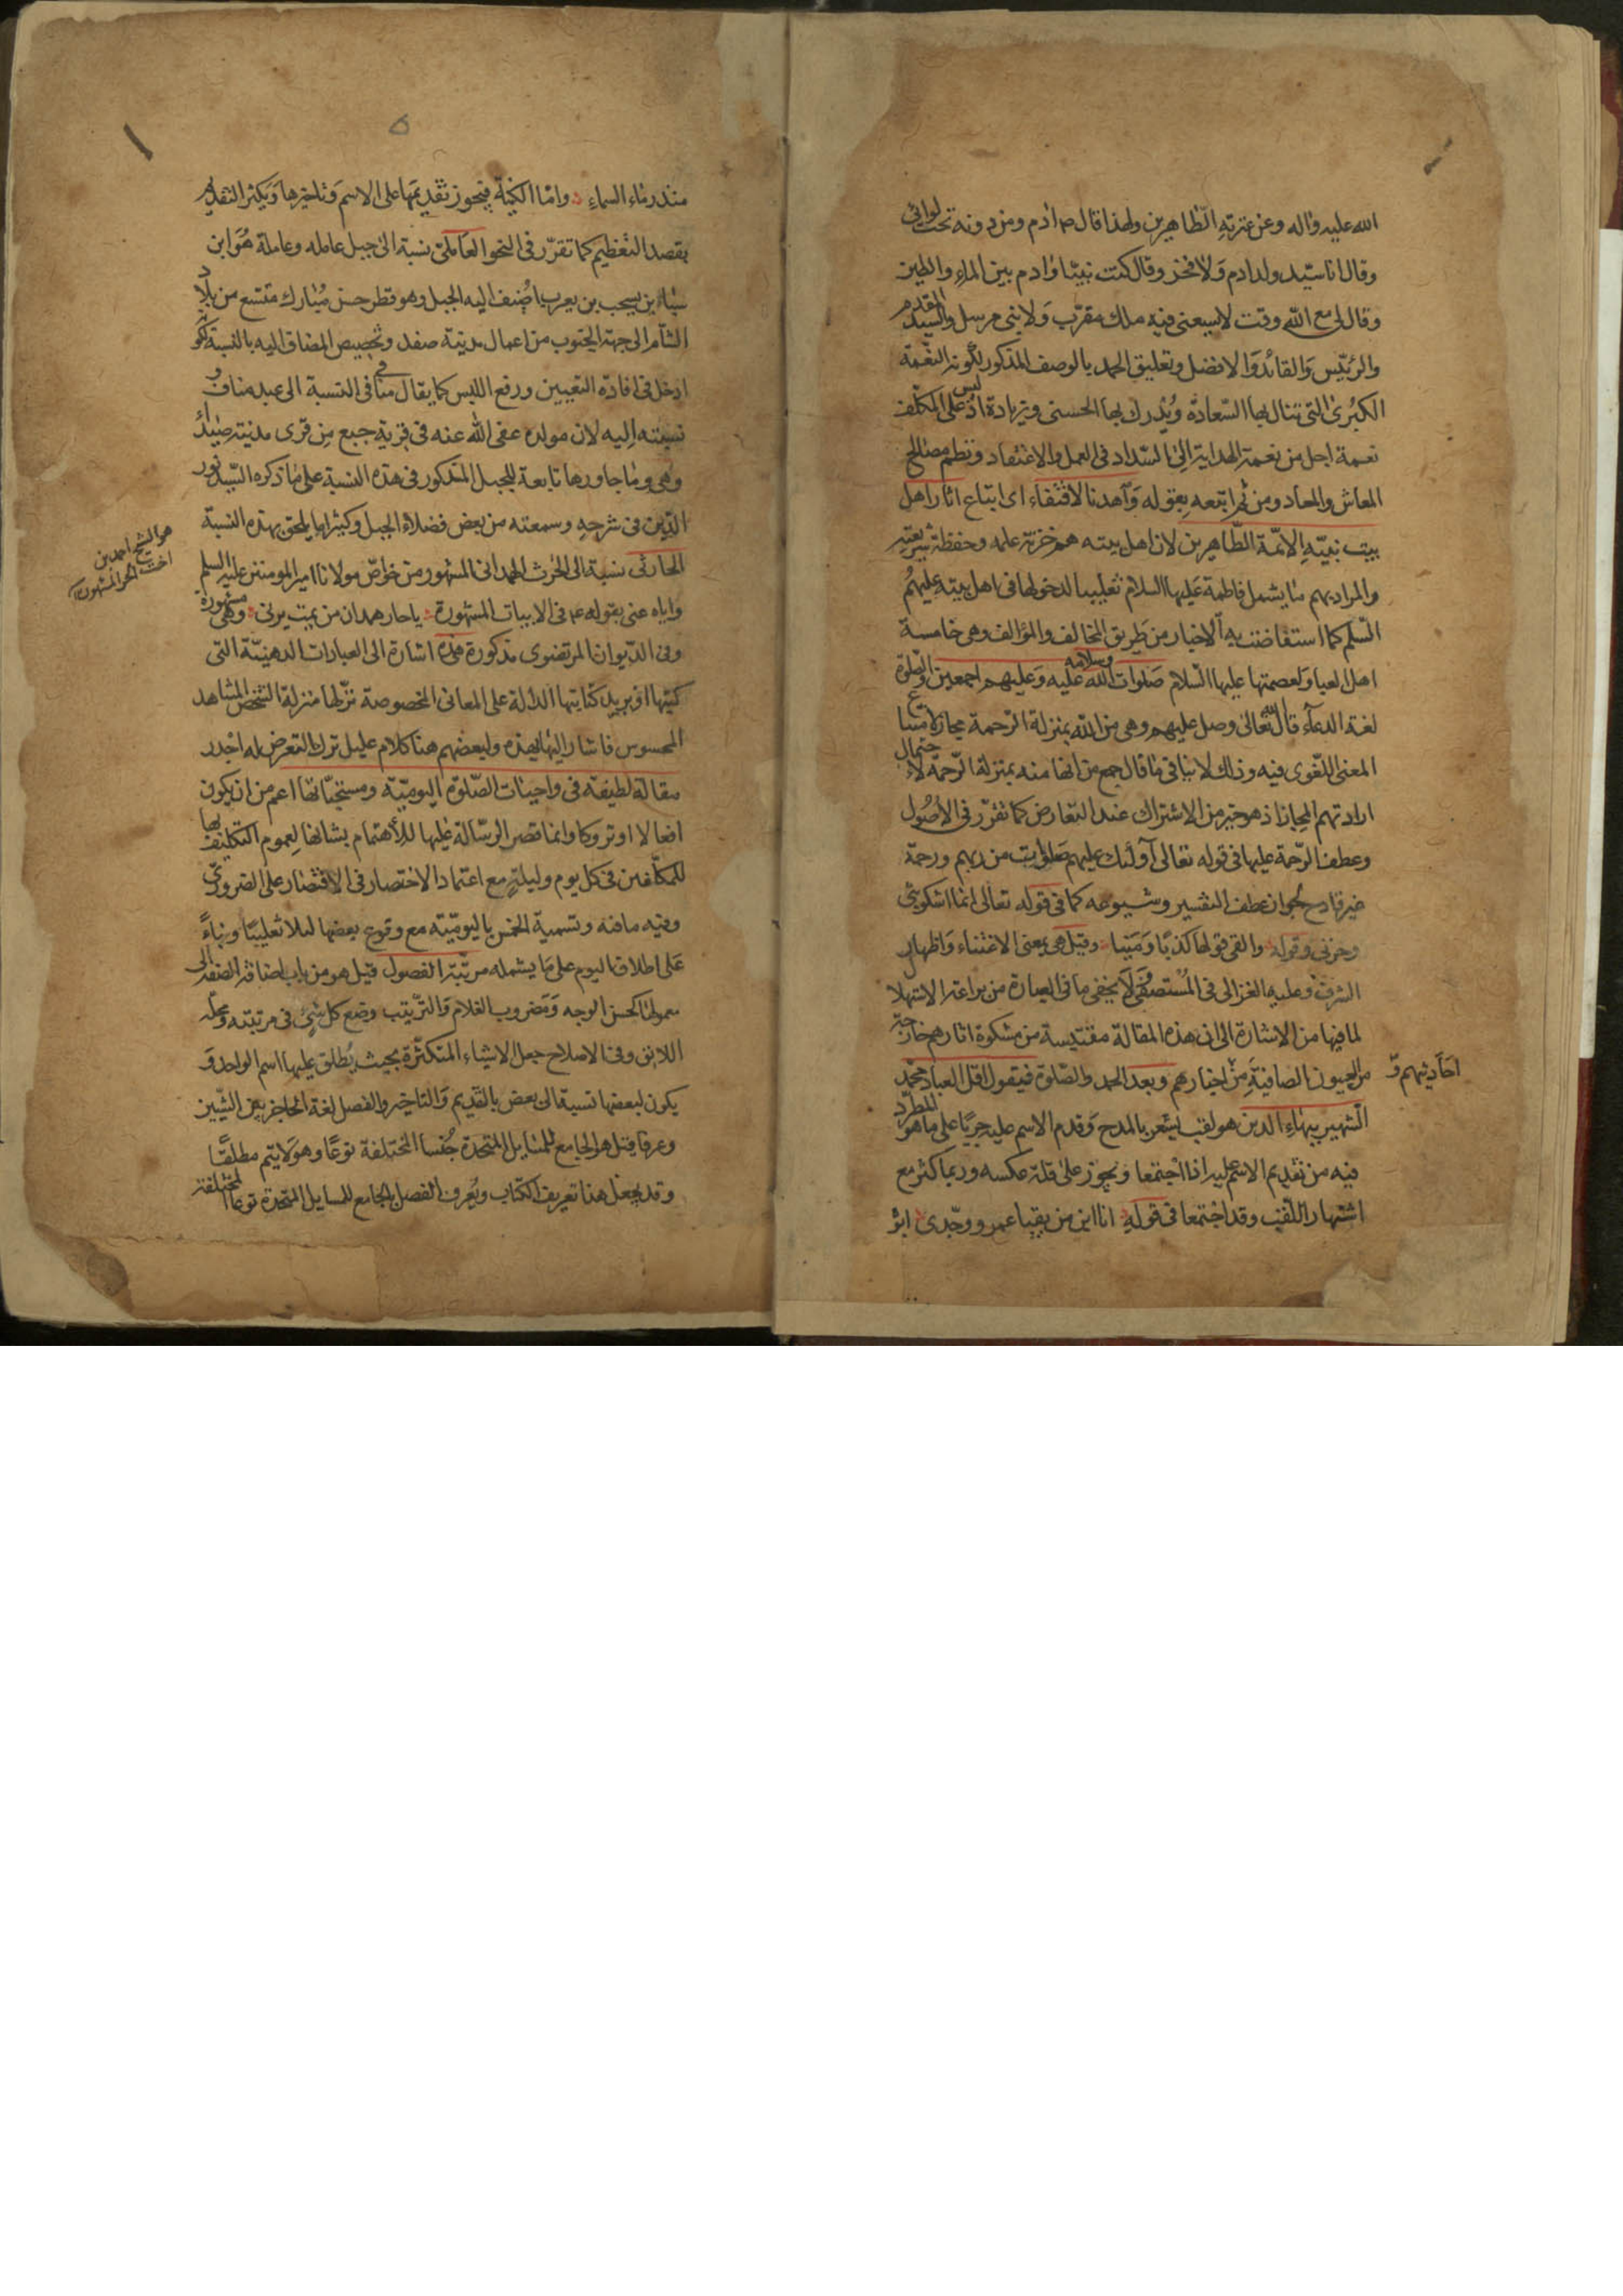 الله عليه واله وعن عترته الطاهرين ولهذا قال ص ادم ومن دونه تحت لوائى
وقال انا سيد ولد ادم ولا فخر وقال كنت نبيا وادم بين الماء والطين
وقال لى مع الله وقت لا يسعنى فيه ملك مقرب ولا نبى مرسل والسيد المقدم
والرئيس والقائد والافضل وتعليق الحمد بالوصف المذكور لكونه النعمة
الكبرى التى تنال بها السعادة ويدرك بها الحسنى وزيادة اذ ليس على المكلف
نعمة اجل من نعمة الهداية الى السداد فى العمل والاعتقاد ونظم مصالح
المعاش والمعاد ومن ثم اتبعه بقوله واهدنا لاقتفاء اى اتباع اثار اهل
بيت نبيه الائمة الطاهرين لان اهل بيته هم خزنة علمه وحفظة شريعته
والمراد بهم ما يشمل فاطمة عليها السلام تغليبا لدخولها فى اهل بيته عليهم
السلم كما استفاضت به الاخبار من طريق المخالف والمؤالف وهى خامسة
اهل العبا ولعصمتها عليها السلام صلوات الله وسلامه عليه وعليهم اجمعين والصلوة
لغة الدعاء قال الله تعالى وصل عليهم وهى من الله بمنزلة الرحمة مجاز لامتناع
المعنى اللغوى فيه وذلك لا ينافى ما قال جمع من انها منه بمنزلة الرحمة لاحتمال
ارادتهم المجاز اذ هو خير من الاشتراك عند التعارض كما تقرر فى الاصول
وعطف الرحمة عليها فى قوله تعالى اولئك عليهم صلوات من ربهم ورحمة
غير قادح لجواز عطف التفسير وشيوعه كما فى قوله تعالى انما اشكو بثى
وحزنى وقوله والفى قولها كذبا ومينا وقيل هى بمعنى الاعتناء واظهار
الشرف وعليه الغزالى فى المستصفى ولا يخفى ما فى العبارة من براعة الاستهلال
لما فيها من الاشارة الى ان هذه المقالة مقتبسة من مشكوة اثارهم خارجة
من العيون الصافية من اخبارهم وبعد الحمد والصلوة فيقول اقل العباد محمد
احاديثهم و
الشهير ببهاء الدين هو لقب يشعر بالمدح وقدم الاسم عليه جريا على ما هو المطرد
فيه من تقديم الاسم عليه اذا اجتمعا ويجوز على قلة عكسه وربما كثر مع
اشتهار اللقب وقد اجتمعا فى قوله انا ابن مزيقيا عمرو وجدى ابو
منذر ماء السماء واما الكنية فيجوز تقديمها على الاسم وتاخيرها ويكثر التقديم
بقصد التعظيم كما تقرر فى النحو العاملى نسبة الى جبل عامله وعاملة هو ابن
سباء بن يسجب بن يعرب اضيف اليه الجبل وهو قطر حسن مبارك متسع من بلاد
الشام الى جهة الجنوب من اعمال مدينة صفد وتخصيص المضاف اليه بالنسبة لكونه
ادخل فى افادة التعيين ورفع اللبس كما يقال منافى فى النسبة الى عبد مناف و
نسبته اليه لان مولده عفى الله عنه فى قرية جبع من قرى مدينة صيداء
وهى وما جاورها تابعة للجبل المذكور فى هذه النسبة على ما ذكره السيد نور
الدين فى شرحه وسمعته من بعض فضلاء الجبل وكثيرا ما يلحق بهذه النسبة
هو الشيخ احمد بن
اخت الحر المشهور
الحارثى نسبة الى الحرث الهمدانى المشهور من خواص مولانا امير المومنين عليه السلم
واياه عنى بقوله ع فى الابيات المشهورة يا حار همدان من يمت يرنى وهى مشهورة
وفى الديوان المرتضوى مذكورة هذه اشارة الى العبارات الذهنية التى
كتبها او يريد كتابتها الدالة على المعانى المخصوصة نزلها منزلة الشخص المشاهد
المحسوس فاشار اليها بهذه ولبعضهم هنا كلام عليل ترك التعرض له اجدر
مقالة لطيفة فى واجبات الصلوة اليومية ومستحباتها اعم من ان يكون
افعالا او تروكا وانما قصر الرسالة عليها للاهتمام بشانها لعموم التكليف بها
للمكلفين فى كل يوم وليلة مع اعتماد الاختصار فى الاقتصار على الضرورى
وفيه ما فيه وتسمية الخمس باليومية مع وقوع بعضها ليلا تغليبا وبناء
على اطلاق اليوم على ما يشمله مرتبة الفصول قيل هو من باب اضافة الصفة الى
معمولها كحسن الوجه ومضروب الغلام والترتيب وضع كل شىء فى مرتبته ومحله
اللائق وفى الاصلاح جعل الاشياء المتكثرة بحيث يطلق عليها اسم الواحد و
يكون لبعضها نسبة الى بعض بالتقديم والتاخير والفصل لغة الحاجز بين الشيئين
وعرفا قيل هو الجامع للمسايل المتحدة جنسا المختلفة نوعا وهو لا يتم مطلقا
وقد يجعل هذا تعريف الكتاب ويعرف الفصل بالجامع للمسايل المتحدة نوعا المختلفة